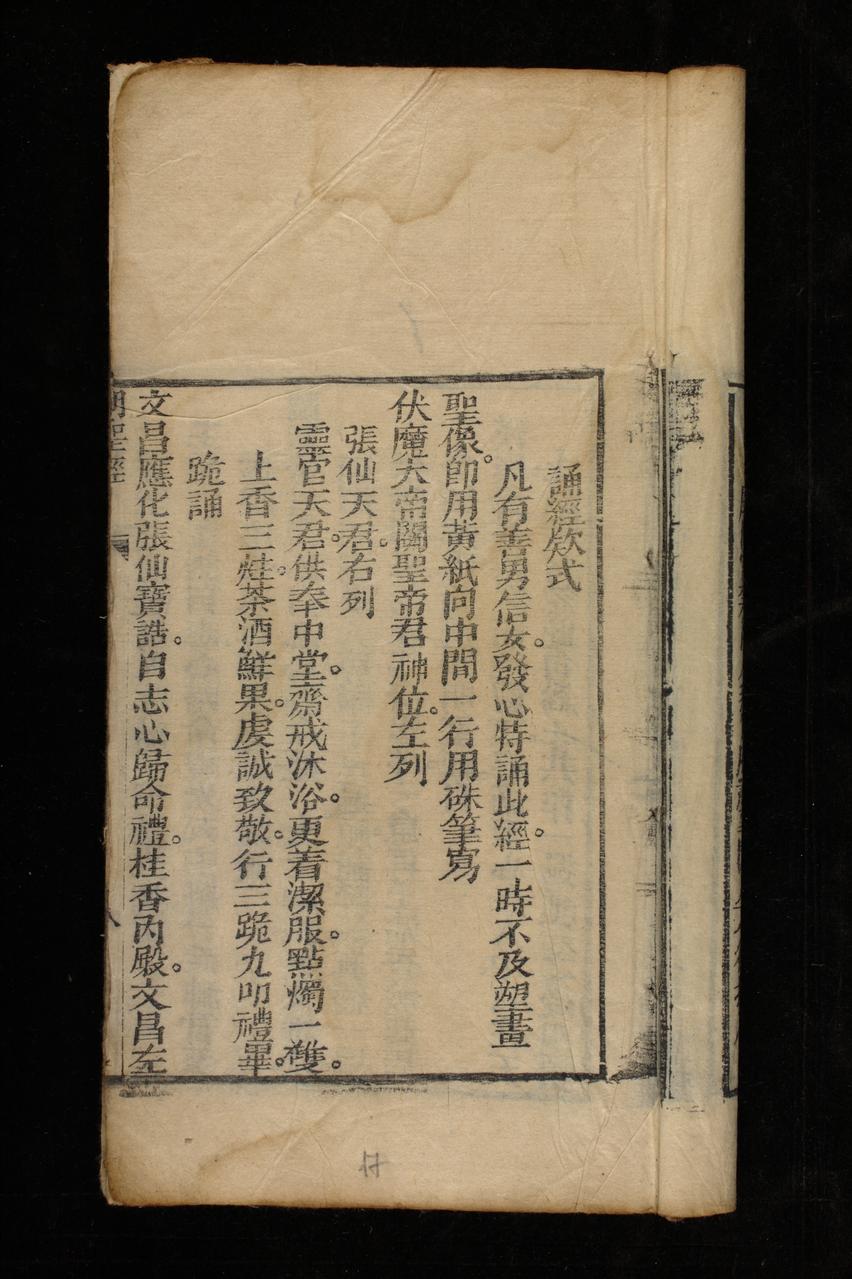 誦經欵式
凡有善男信女。發心特誦此經。一時不及塑畫
聖像。卽用黃紙向中間一行用硃筆寫
伏魔大帝關聖帝君神位。左列
張仙天君。右列
靈官天君。供奉中堂。齋戒沐浴。更着潔服。點燭一雙。
上香三炷。茶酒鮮果。虔誠致敬。行三跪九叩禮畢。
跪誦
文昌應化張仙寶誥。自志心歸命禮。桂香內殿。文昌左